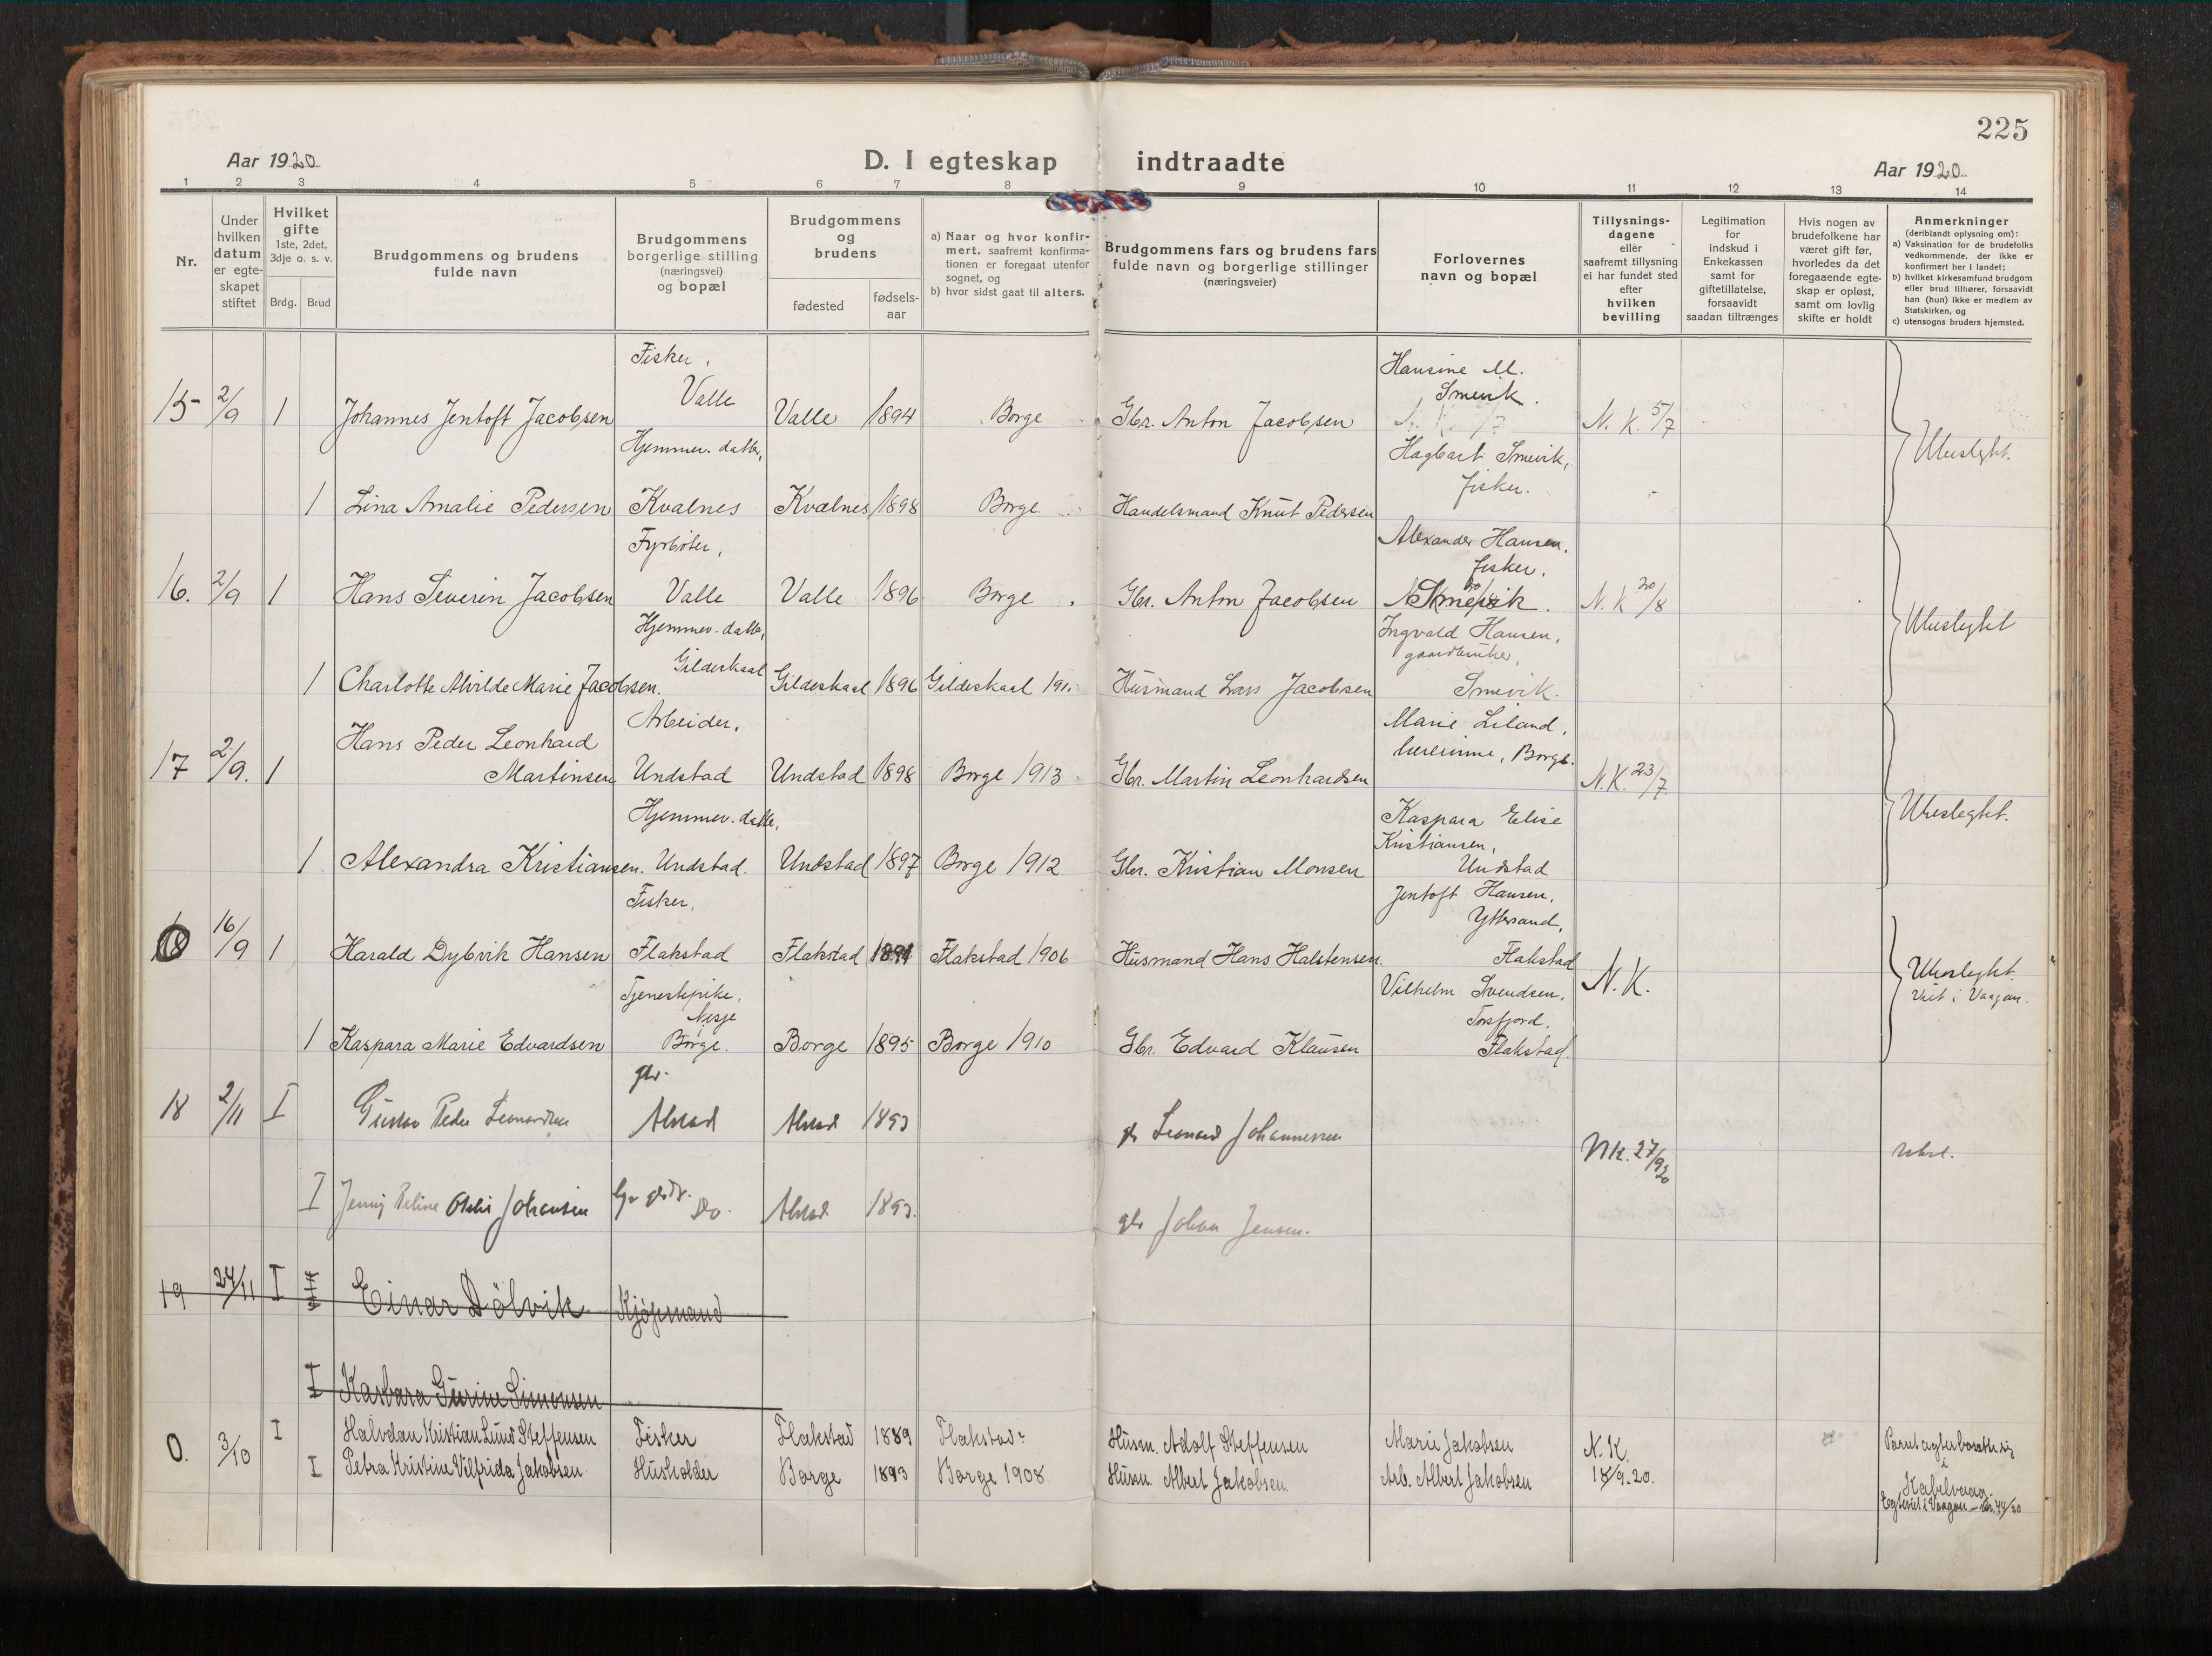 225
Aar 1920
D. I egteskap indtraadte
Aar 1920
1 2 3 4 5 6 7 8 9 10 11 12 13 14
Nr.
Under hvilken datum er egte-skapet stiftet
Hvilket gifte
1ste, 2det, 3dje o. s. v.
Brdg. Brud
Brudgommens og brudens fulde navn
Brudgommens borgerlige stilling (næringsvei) og bopæl
Brudgommens og brudens
fødested
fødsels-aar
a) Naar og hvor konfir-mert, saafremt konfirma-tionen er foregaat utenfor sognet, og
b) hvor sidst gaat til alters.
Brudgommens fars og brudens fars fulde navn og borgerlige stillinger (næringsveier)
Forlovernes navn og bopæl
Tillysnings-dagene eller saafremt tillysning ei har fundet sted efter hvilken bevilling
Legitimation for indskud i Enkekassen samt for giftetillatelse, forsaavidt saadan tiltrænges
Hvis nogen av brudefolkene har været gift før, hvorledes da det foregaaende egte-skap er opløst, samt om lovlig skifte er holdt
Anmerkninger
(deriblandt oplysning om):
a) Vaksination for de brudefolks vedkommende, der ikke er konfirmert her i landet;
b) hvilket kirkesamfund brudgom eller brud tilhører, forsaavidt han (hun) ikke er medlem av Statskirken, og
c) utensogns bruders hjemsted.
15 2/9 1 Johannes Jentoft Jacobsen Fisker, Valle Valle 1894 Borge Gbr. Anton Jacobsen Hansine M. Smevik. N. K. 5/7
Ubeslegtet.
1 Lina Amalie Pedersen Hjemmev. datter, Kvalnes Kvalnes 1898 Borge Handelsmand Knut Pedersen Hagbart Smevik, fisker.
16. 2/9 1 Hans Severin Jacobsen Fyrbøter, Valle Valle 1896 Borge Gbr. Anton Jacobsen Alexander Hansen, fisker. Smevik. N. K 20/8
Ubeslegtet
1 Charlotte Alvilde Marie Jacobsen. Hjemmev. datter, Gildeskaal Gildeskaal 1896 Gildeskaal Husmand Lars Jacobsen Ingvald Hansen, gaardbruker, Smevik.
17 2/9. 1 Hans Peder Leonhard Martinsen Arbeider, Undstad Undstad 1898 Borge 1913 Gbr. Martin Leonhardsen Marie Liland, lærerinne, Borge. N.K. 23/7
Ubeslegtet.
1 Alexandra Kristiansen. Hjemmev. datter, Undstad. Undstad 1897 Borge 1912 Gbr. Kristian Monsen Kaspara Elise Kristiansen, Undstad
16/9 1 Harald Dybvik Hansen Fisker, Flakstad Flakstad Flakstad 1906 Husmand Hans Halstensen. Jentoft Hansen, Yttersand, Flakstad N. K.
Ubeslegtet.
Viet i Vaagan.
1 Kaspara Marie Edvardsen Tjenestepike, Nesje Borge. Borge 1895 Borge 1910 Gbr. Edvard Klausen Vilhelm Svendsen, Torsfjord, Flakstad.
18 2/11 I Gustav Peder Leonardsen gbr. Alstad Alstad 1893 gb Leonard Johannessen NK. 27/9 20
ubesl.
I Jenny Peline Johansen Do. Alstad 1893. gbr Johan Jensen.
19 24/11 I Einar Dölvik Kjøpmand
I Karbara Gurine Simonsen
0. 3/10 I Halvdan Kristian Lund Steffensen Fisker Flakstad 1889 Flakstad? Husm. Adolf Steffensen Marie Jakobsen N. K.
I Petra Kristine Vilfrida Jakobsen Husholder Borge 1893 Borge 1908 Husm. Albert Jakobsen. Arb. Albert Jakobsen 18/9.20.
Parret agter bosætte sig i Kabelvaag.
Egteviet i Vaagan - Nr. 44/20